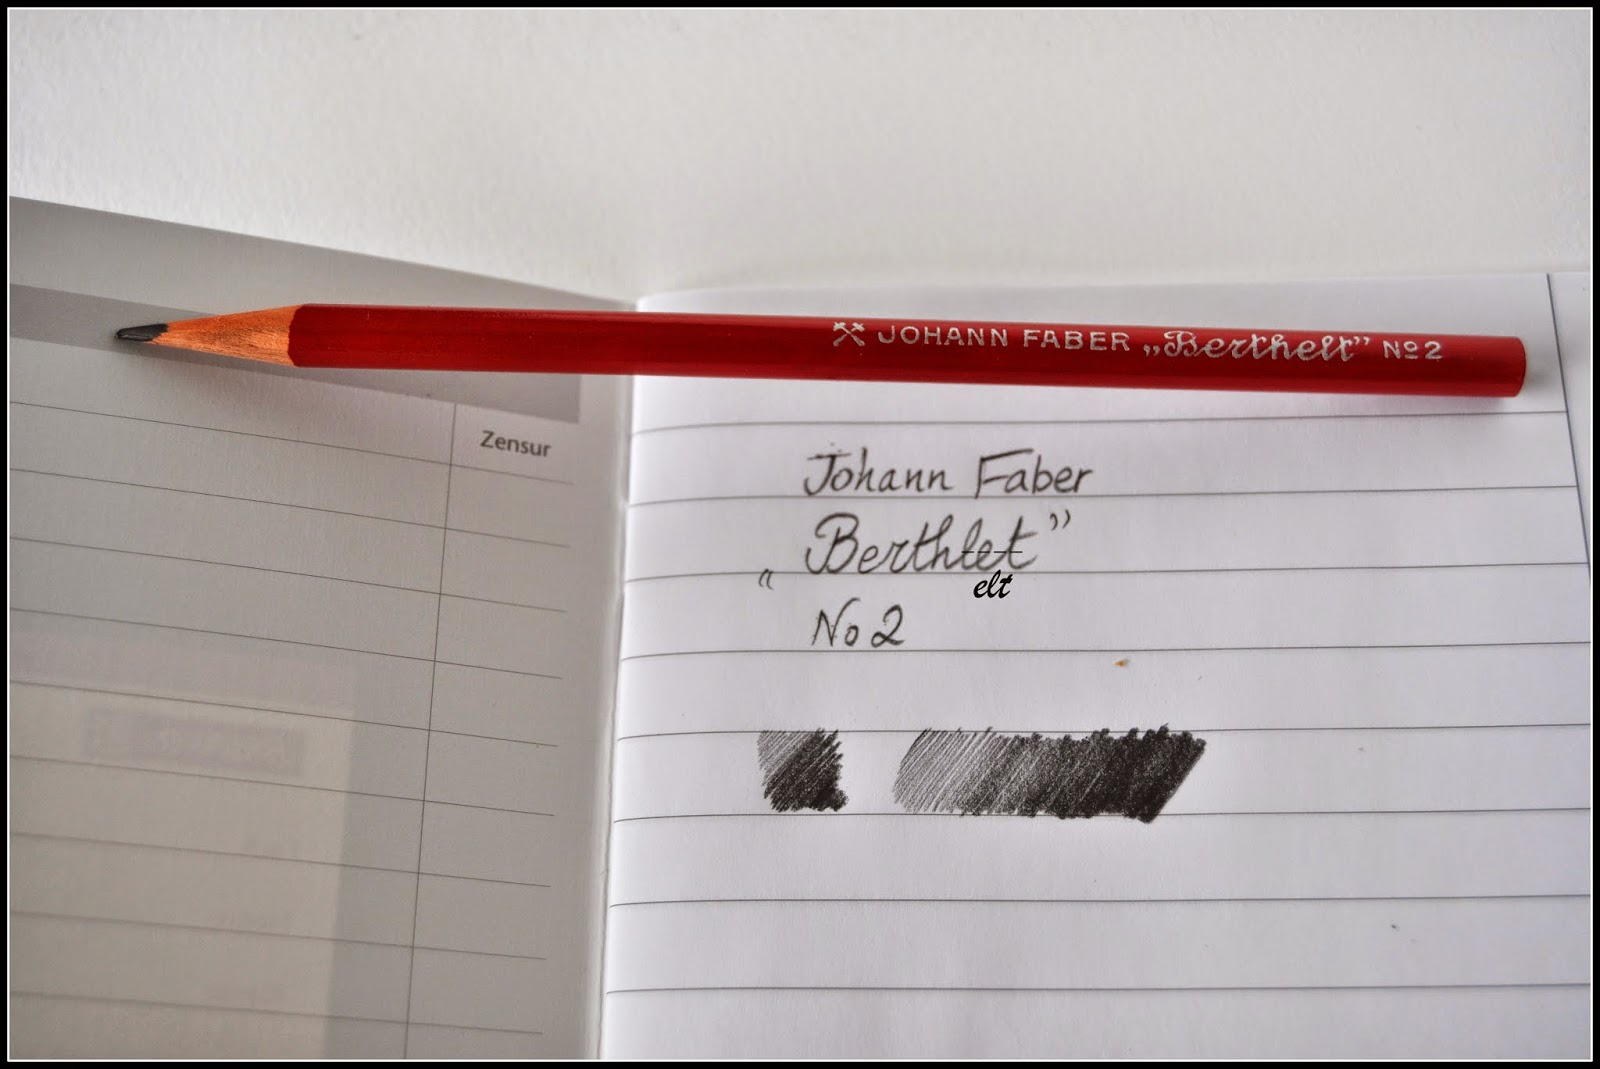 JOHANN FABER „Berthelt” No2
Zensur
Johann Faber
„Berthlet”
elt
No 2